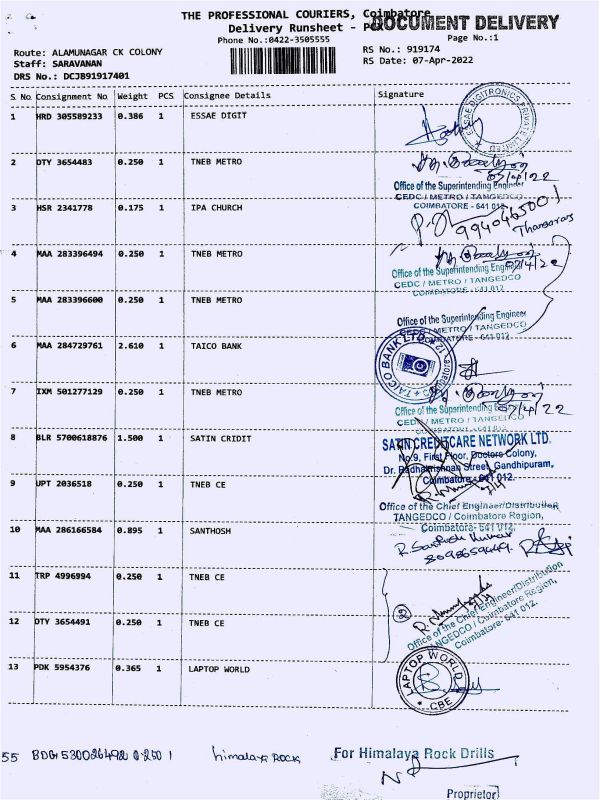 THE PROFESSIONAL COURIERS, Coimbatore
DOCUMENT DELIVERY
Delivery Runsheet -
Phone No.:0422-3505555
Page No.:1
Route: ALAMUNAGAR CK COLONY
RS No.: 919174
Staff: SARAVANAN
RS Date: 07-Apr-2022
DRS No.: DCJB91917401
S No Consignment No Weight PCS Consignee Details Signature
1 HRD 305589233 0.386 1 ESSAE DIGIT
ESSAE DIGITRONICS PRIVATE LIMITED
2 DTY 3654483 0.250 1 TNEB METRO
07/4/22
Office of the Superintending Engineer
CEDC / METRO / TANGEDCO
COIMBATORE - 641 012.
3 HSR 2341778 0.175 1 IPA CHURCH
9940465001
Thangaraj
4 MAA 283396494 0.250 1 TNEB METRO
07/4/22
Office of the Superintending Engineer
CEDC / METRO / TANGEDCO
COIMBATORE - 641 012
5 MAA 283396600 0.250 1 TNEB METRO
Office of the Superintending Engineer
CEDC / METRO / TANGEDCO
COIMBATORE - 641 012.
6 MAA 284729761 2.610 1 TAICO BANK
TAICO BANK LTD. Coimbatore 12
7 IXM 501277129 0.250 1 TNEB METRO
07/4/22
Office of the Superintending Engineer
CEDC / METRO / TANGEDCO
COIMBATORE - 641 012.
8 BLR 5700618876 1.500 1 SATIN CRIDIT
SATIN CREDITCARE NETWORK LTD.
No.9, First Floor, Doctors Colony,
Dr. Radhakrishnan Street, Gandhipuram,
Coimbatore - 641 012.
9 UPT 2036518 0.250 1 TNEB CE
Office of the Chief Engineer/Distribution
TANGEDCO / Coimbatore Region,
Coimbatore- 641 012.
10 MAA 286166584 0.895 1 SANTHOSH
R. Santhosh Kumar
8098659449.
11 TRP 4996994 0.250 1 TNEB CE
Office of the Chief Engineer/Distribution
TANGEDCO / Coimbatore Region,
Coimbatore- 641 012.
12 DTY 3654491 0.250 1 TNEB CE
13 PDK 5954376 0.365 1 LAPTOP WORLD
LAPTOP WORLD
CBE
55 BDG 530026492 0.250 1 himalaya ROCK
For Himalaya Rock Drills
Proprietor